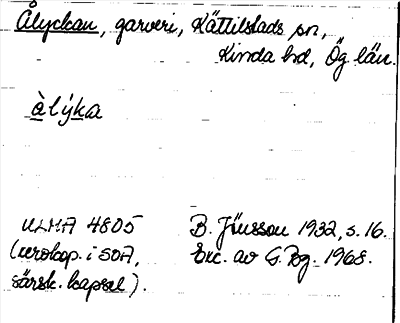 Ålyckan, garveri, Kättilstads sn,
Kinda hd, Ög. län.
àlýka
ULMA 4805 B. Jönsson 1932, s. 16.
(xerokop. i SOA, Exc. av G. Bg. 1968.
särsk. kapsel).